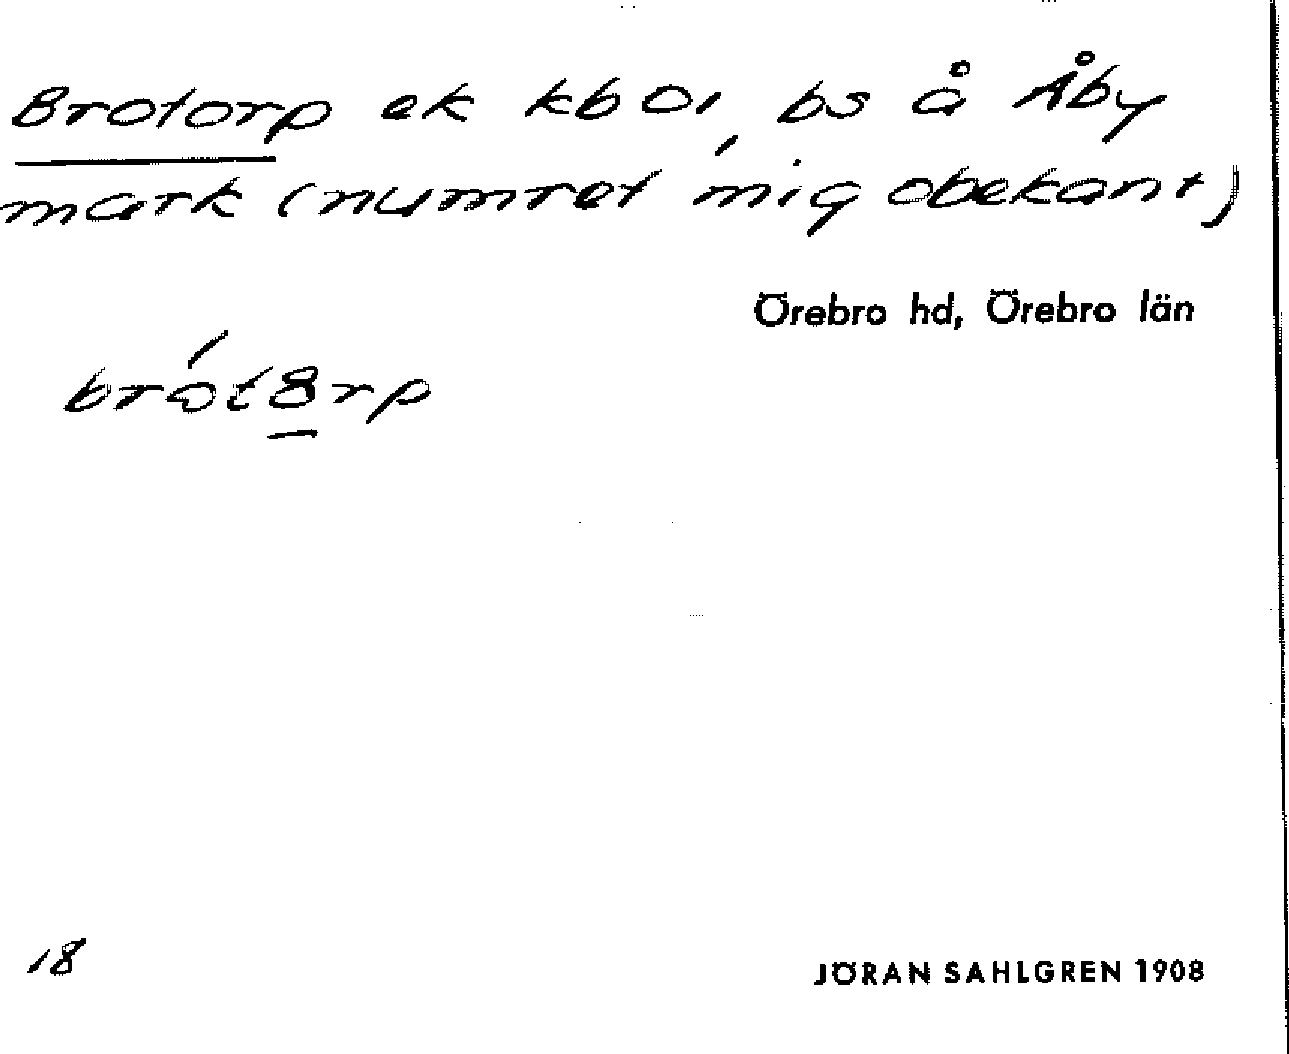 Brotorp ek kb Ol, bs å Åby
mark (numret mig obekant)
Örebro hd, Örebro län
brót8rp
18
JÖRAN SAHLGREN 1908